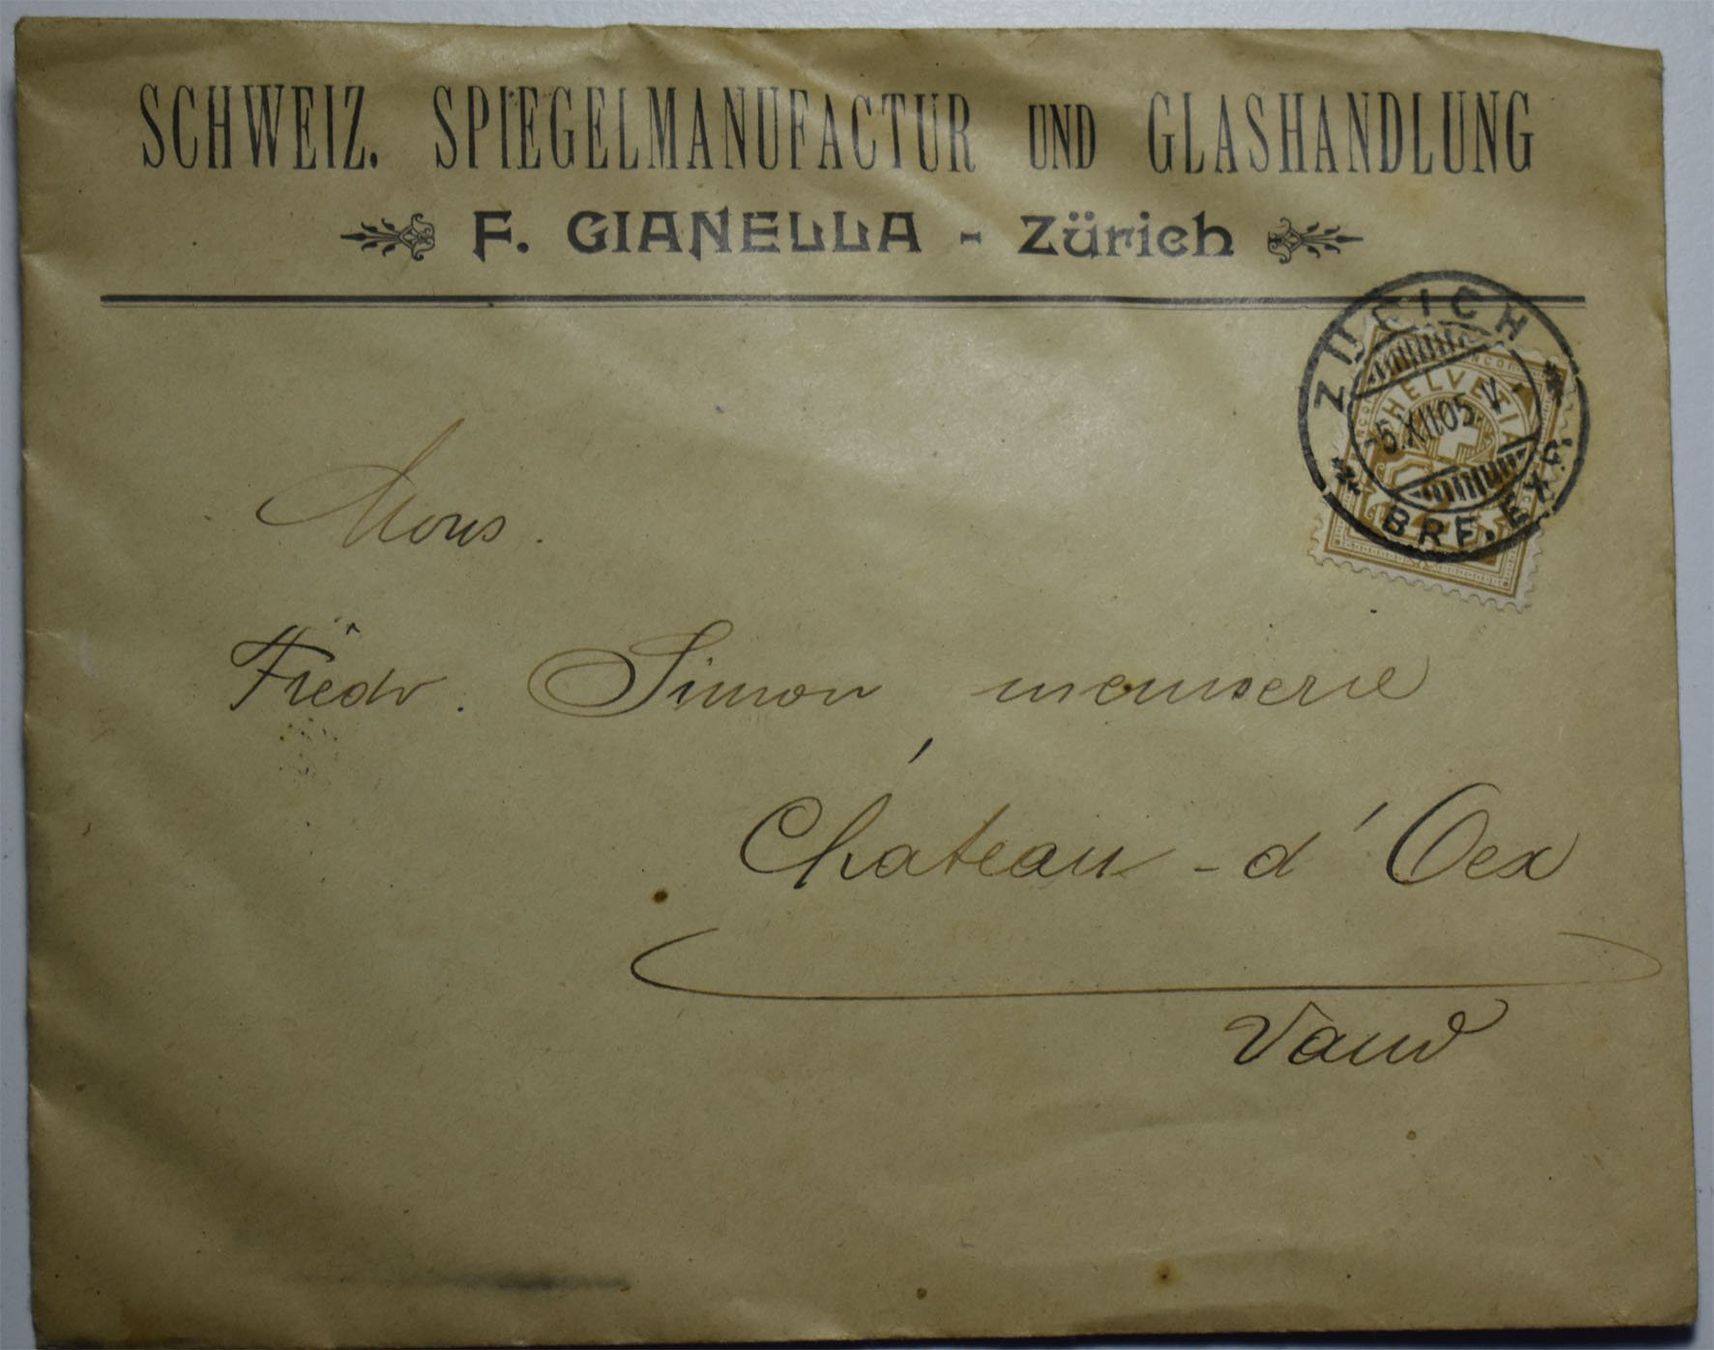 SCHWEIZ. SPIEGELMANUFACTUR UND GLASHANDLUNG
F. GIANELLA - Zürich
ZÜRICH
HELVETIA
6.XII.05. V
BRF. EXP.
Mons.
Frédr. Simon menuserie
Château-d'Oex
Vaud